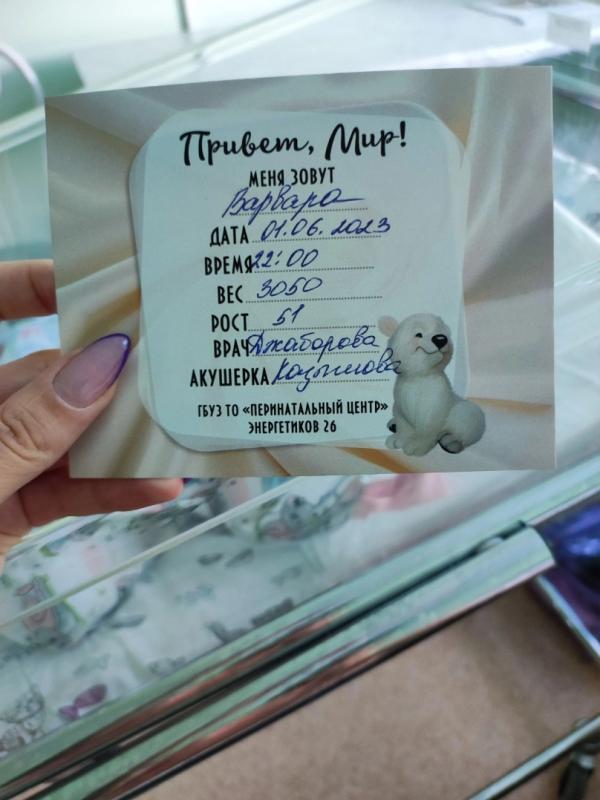 Привет, Мир!
МЕНЯ ЗОВУТ
Варвара
ДАТА 01.06.2023
ВРЕМЯ 22:00
ВЕС 3050
РОСТ 51
ВРАЧ Джаборова
АКУШЕРКА
ГБУЗ ТО «ПЕРИНАТАЛЬНЫЙ ЦЕНТР»
ЭНЕРГЕТИКОВ 26